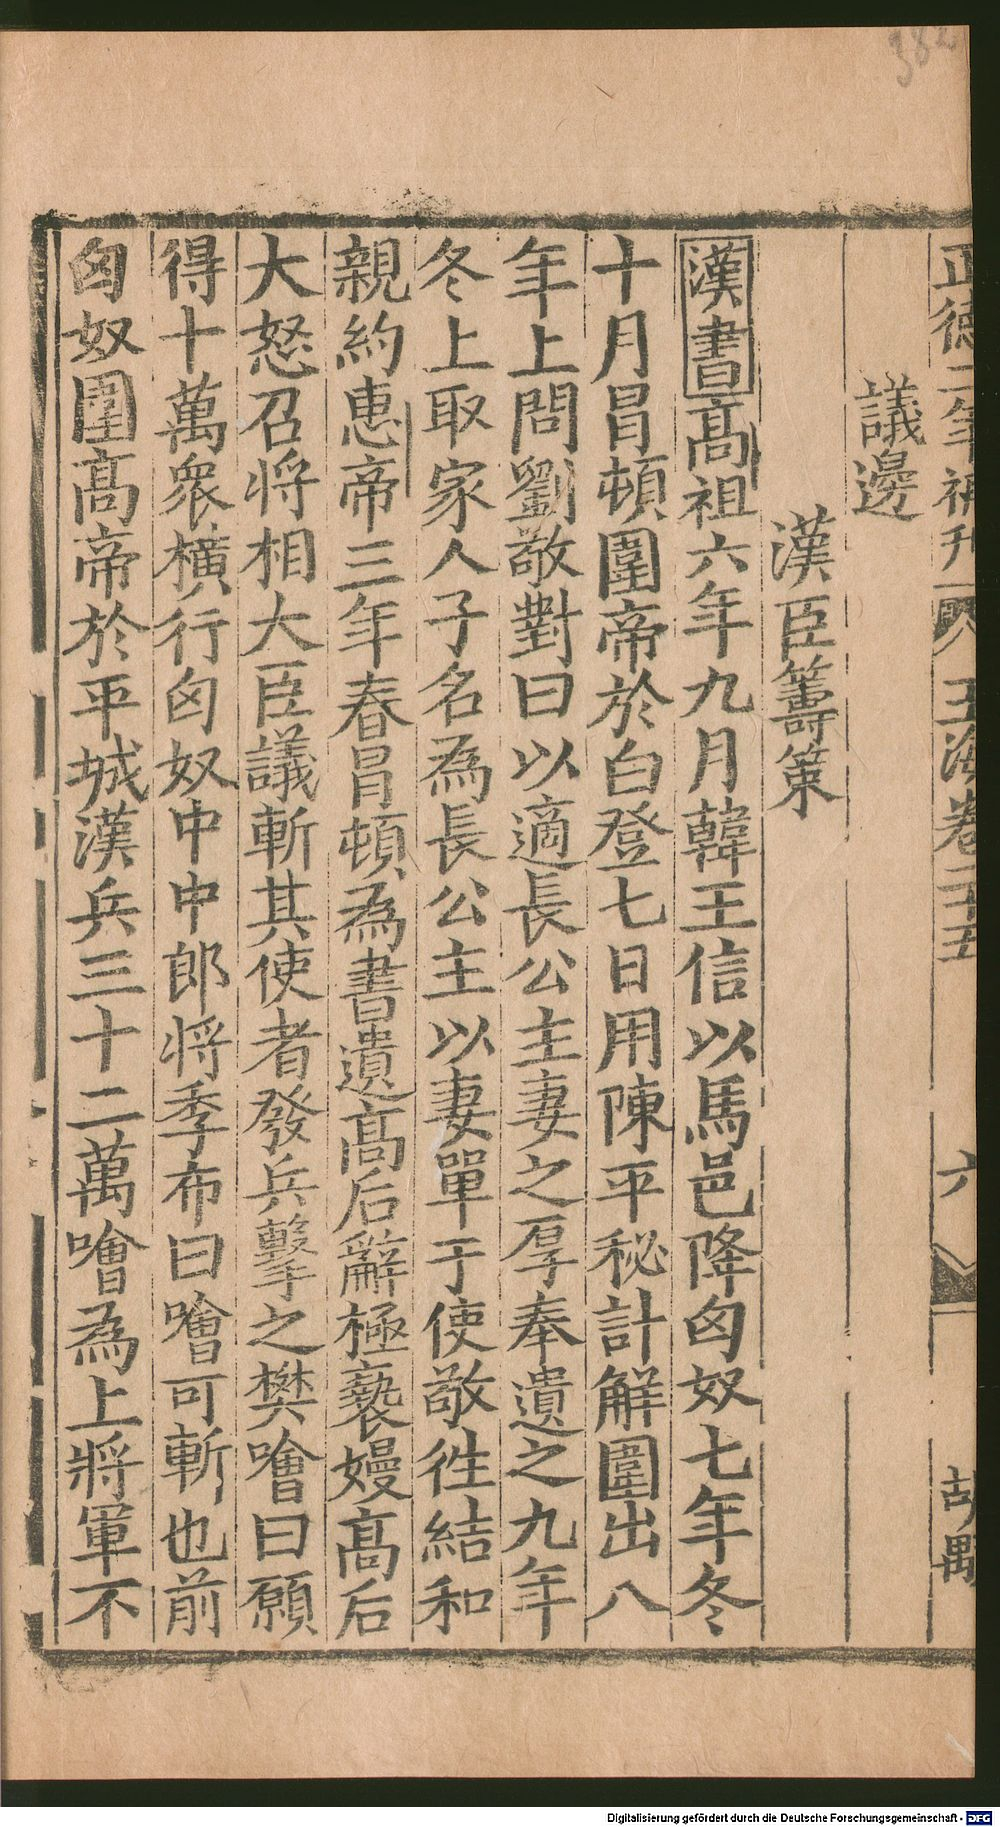 382
正德二年補刊 玉海卷二十五 六 胡禺
議邊
漢臣籌策
漢書高祖六年九月韓王信以馬邑降匈奴七年冬
十月冒頓圍帝於白登七日用陳平秘計解圍出八
年上問劉敬對曰以適長公主妻之厚奉遺之九年
冬上取家人子名為長公主以妻單于使敬徃結和
親約惠帝三年春冒頓為書遺高后辭極褻嫚高后
大怒召将相大臣議斬其使者發兵擊之樊噲曰願
得十萬衆橫行匈奴中中郎将季布曰噲可斬也前
匈奴圍高帝於平城漢兵三十二萬噲為上將軍不
Digitalisierung gefördert durch die Deutsche Forschungsgemeinschaft - DFG